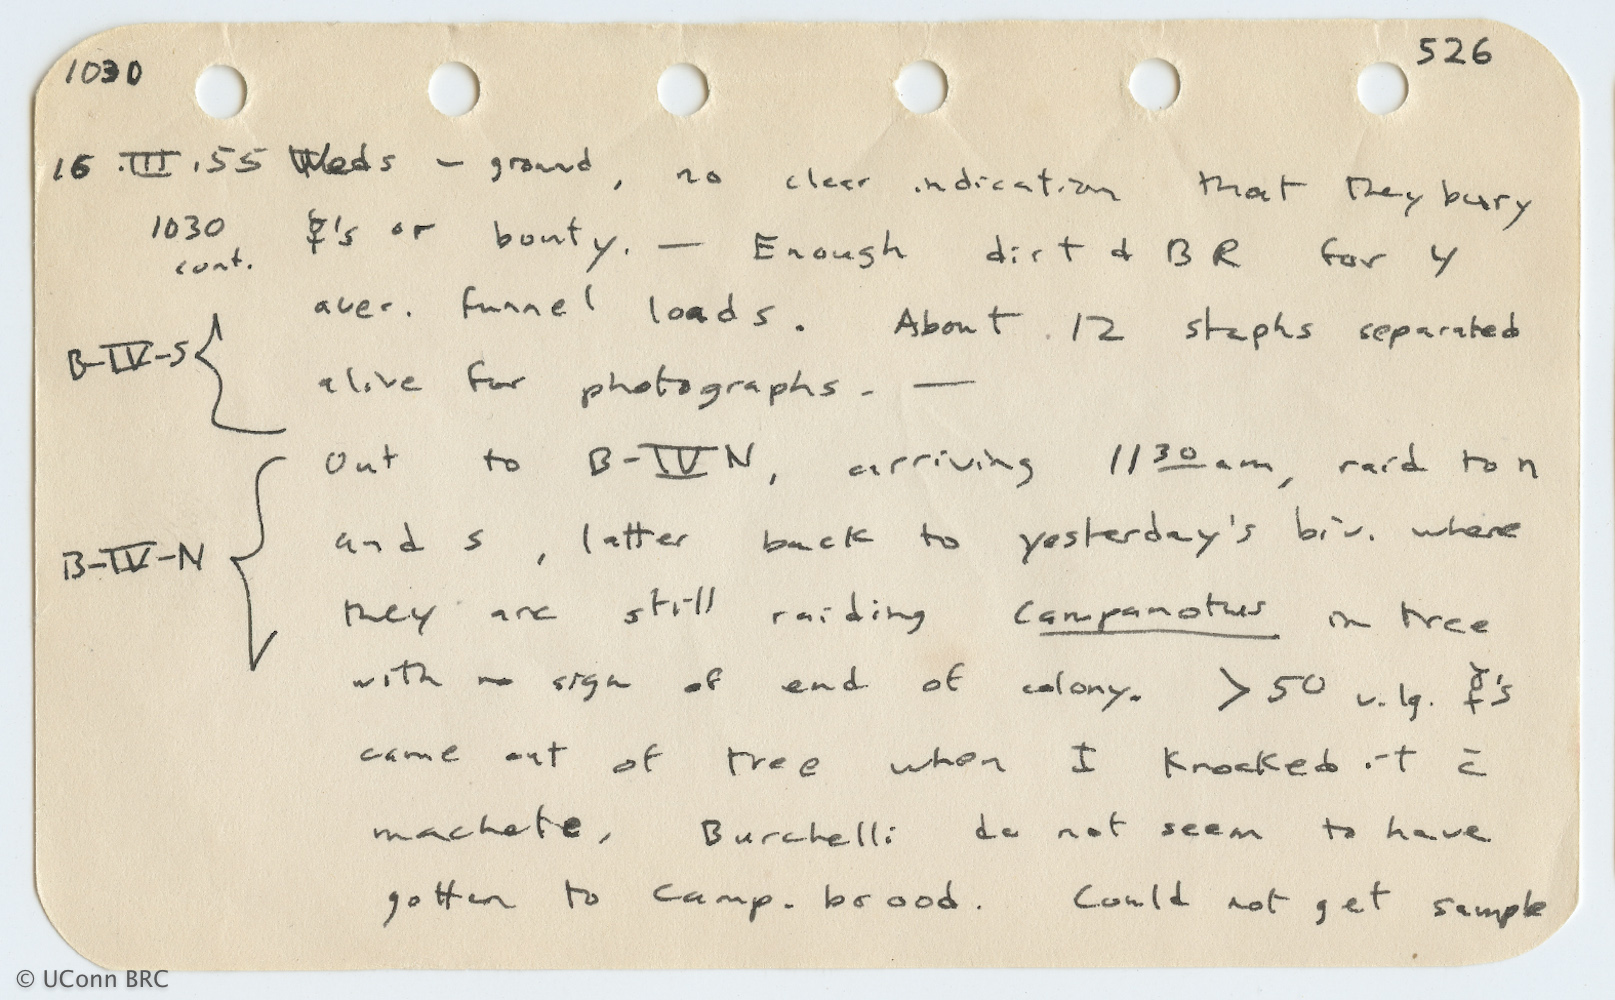 1030
526
16.III.55 Weds – ground, no clear indication that they bury
1030 cont. ☿'s or booty. — Enough dirt & BR for 4
aver. funnel loads. About 12 staphs separated
B-IV-S alive for photographs. —
Out to B-IV N, arriving 11 30 am, raid to n
B-IV-N and s, latter back to yesterday's biv. where
they are still raiding Camponotus in tree
with no sign of end of colony. > 50 v. lg. ☿'s
came out of tree when I knocked it c̄
machete. Burchelli do not seem to have
gotten to Camp. brood. Could not get sample
© UConn BRC